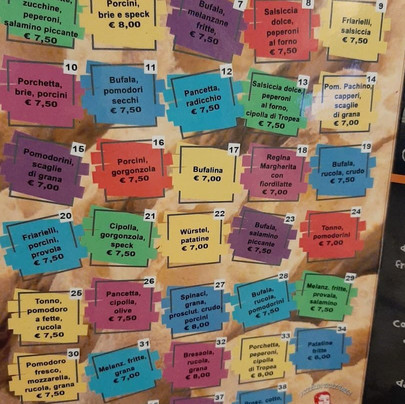 zucchine,
peperoni,
salamino piccante
€ 7,50
Porcini,
brie e speck
€ 8,00
7
Bufala,
melanzane
fritte,
€ 7,50
8
Salsiccia
dolce,
peperoni
al forno
€ 7,50
9
Friarielli,
salsiccia
€ 7,50
10
Porchetta,
brie, porcini
€ 7,50
11
Bufala,
pomodori
secchi
€ 7,50
12
Pancetta,
radicchio
€ 7,50
13
Salsiccia dolce,
peperoni
al forno,
cipolla di Tropea
€ 7,50
14
Pom. Pachino,
capperi,
scaglie
di grana
€ 7,00
15
Pomodorini,
scaglie
di grana
€ 7,00
16
Porcini,
gorgonzola
€ 7,50
17
Bufalina
€ 7,00
18
Regina
Margherita
con
fiordilatte
€ 7,00
19
Bufala,
rucola, crudo
€ 7,50
20
Friarielli,
porcini,
provola
€ 7,50
21
Cipolla,
gorgonzola,
speck
€ 7,50
22
Würstel,
patatine
€ 7,00
23
Bufala,
salamino
piccante
€ 7,50
24
Tonno,
pomodorini
€ 7,00
25
Tonno,
pomodoro
a fette,
rucola
€ 7,50
26
Pancetta,
cipolla,
olive
€ 7,50
27
Spinaci,
grana,
prosciut. crudo,
porcini
€ 8,00
28
Bufala,
rucola,
pomodorini
€ 7,50
29
Melanz. fritte,
provola,
salamino
€ 7,50
30
Pomodoro
fresco,
mozzarella,
rucola, grana
€ 7,50
31
Melanz. fritte,
grana
€ 7,00
32
Bresaola,
rucola,
grana
€ 8,00
33
Porchetta,
peperoni,
cipolla
di Tropea
€ 8,00
34
Patatine
fritte
€ 6,00
35
37
38